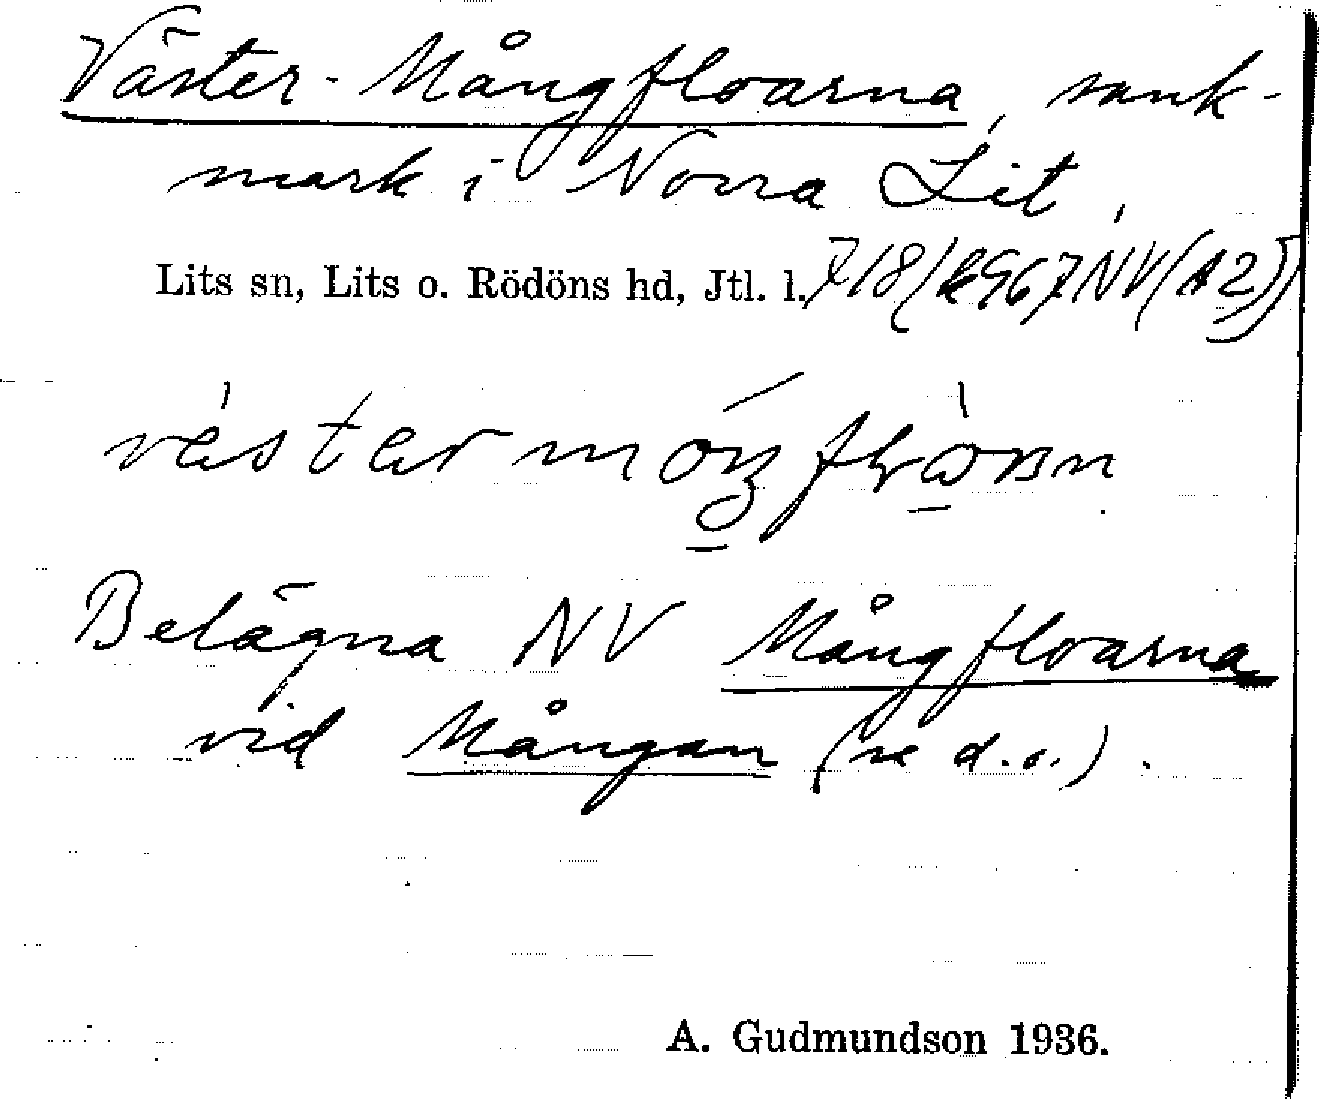 Väster-Mångfloarna, sank-
mark i Norra Lit.
Lits sn, Lits o. Rödöns hd, Jtl. l.
Belägna NV Mångfloarna
vid Mångan (se d.o.).
A. Gudmundson 1936.